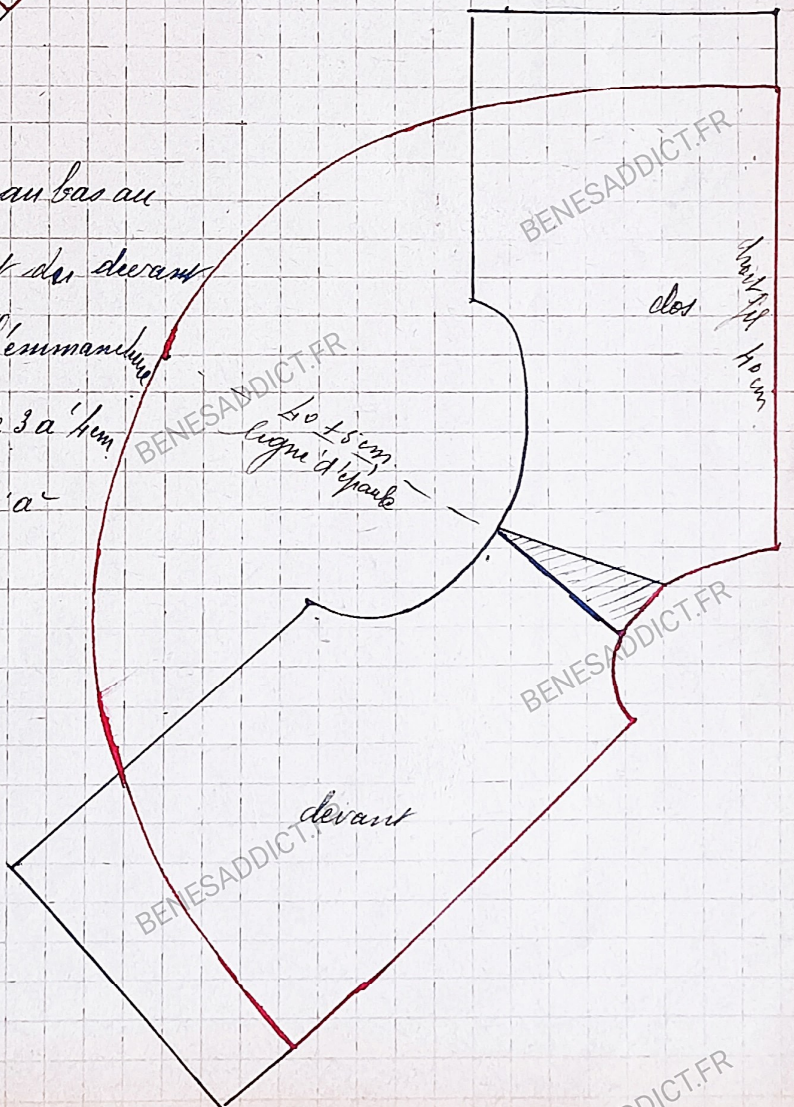 au bas au
du devant
l'emmanchure
3 à 4 cm
à
40 + 5 cm
ligne d'épaule
dos
droit fil 40 cm
devant
BENESADDICT.FR
BENESADDICT.FR
BENESADDICT.FR
BENESADDICT.FR
BENESADDICT.FR